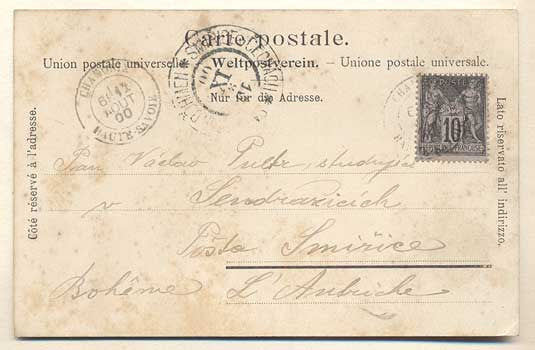 Carte postale.
Union postale universelle. Weltpostverein. - Unione postale universale.
Nur für die Adresse.
Côté réservé à l'adresse.
Lato riservato all' indirizzo.
CHAMONIX
12
AOUT
00
HAUTE-SAVOIE
10
FRANÇAISE
Pan Václav Pultr, studující
v Sendražicích
Pošta Smiřice
Bohême L'Autriche